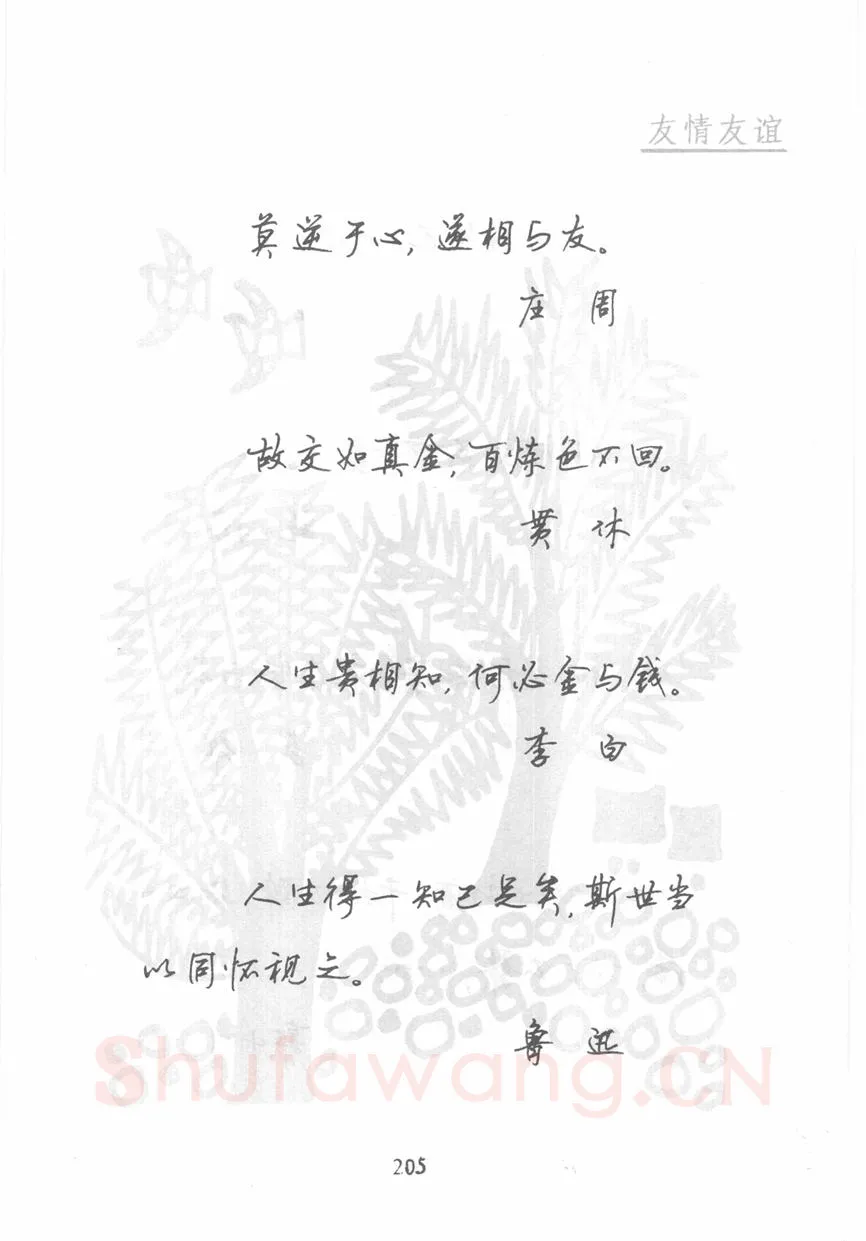 友情友谊
莫逆于心，遂相与友。
庄 周
故交如真金，百炼色不回。
贯 休
人生贵相知，何必金与钱。
李 白
人生得一知己足矣，斯世当
以同怀视之。
鲁 迅
Shufawang.CN
205